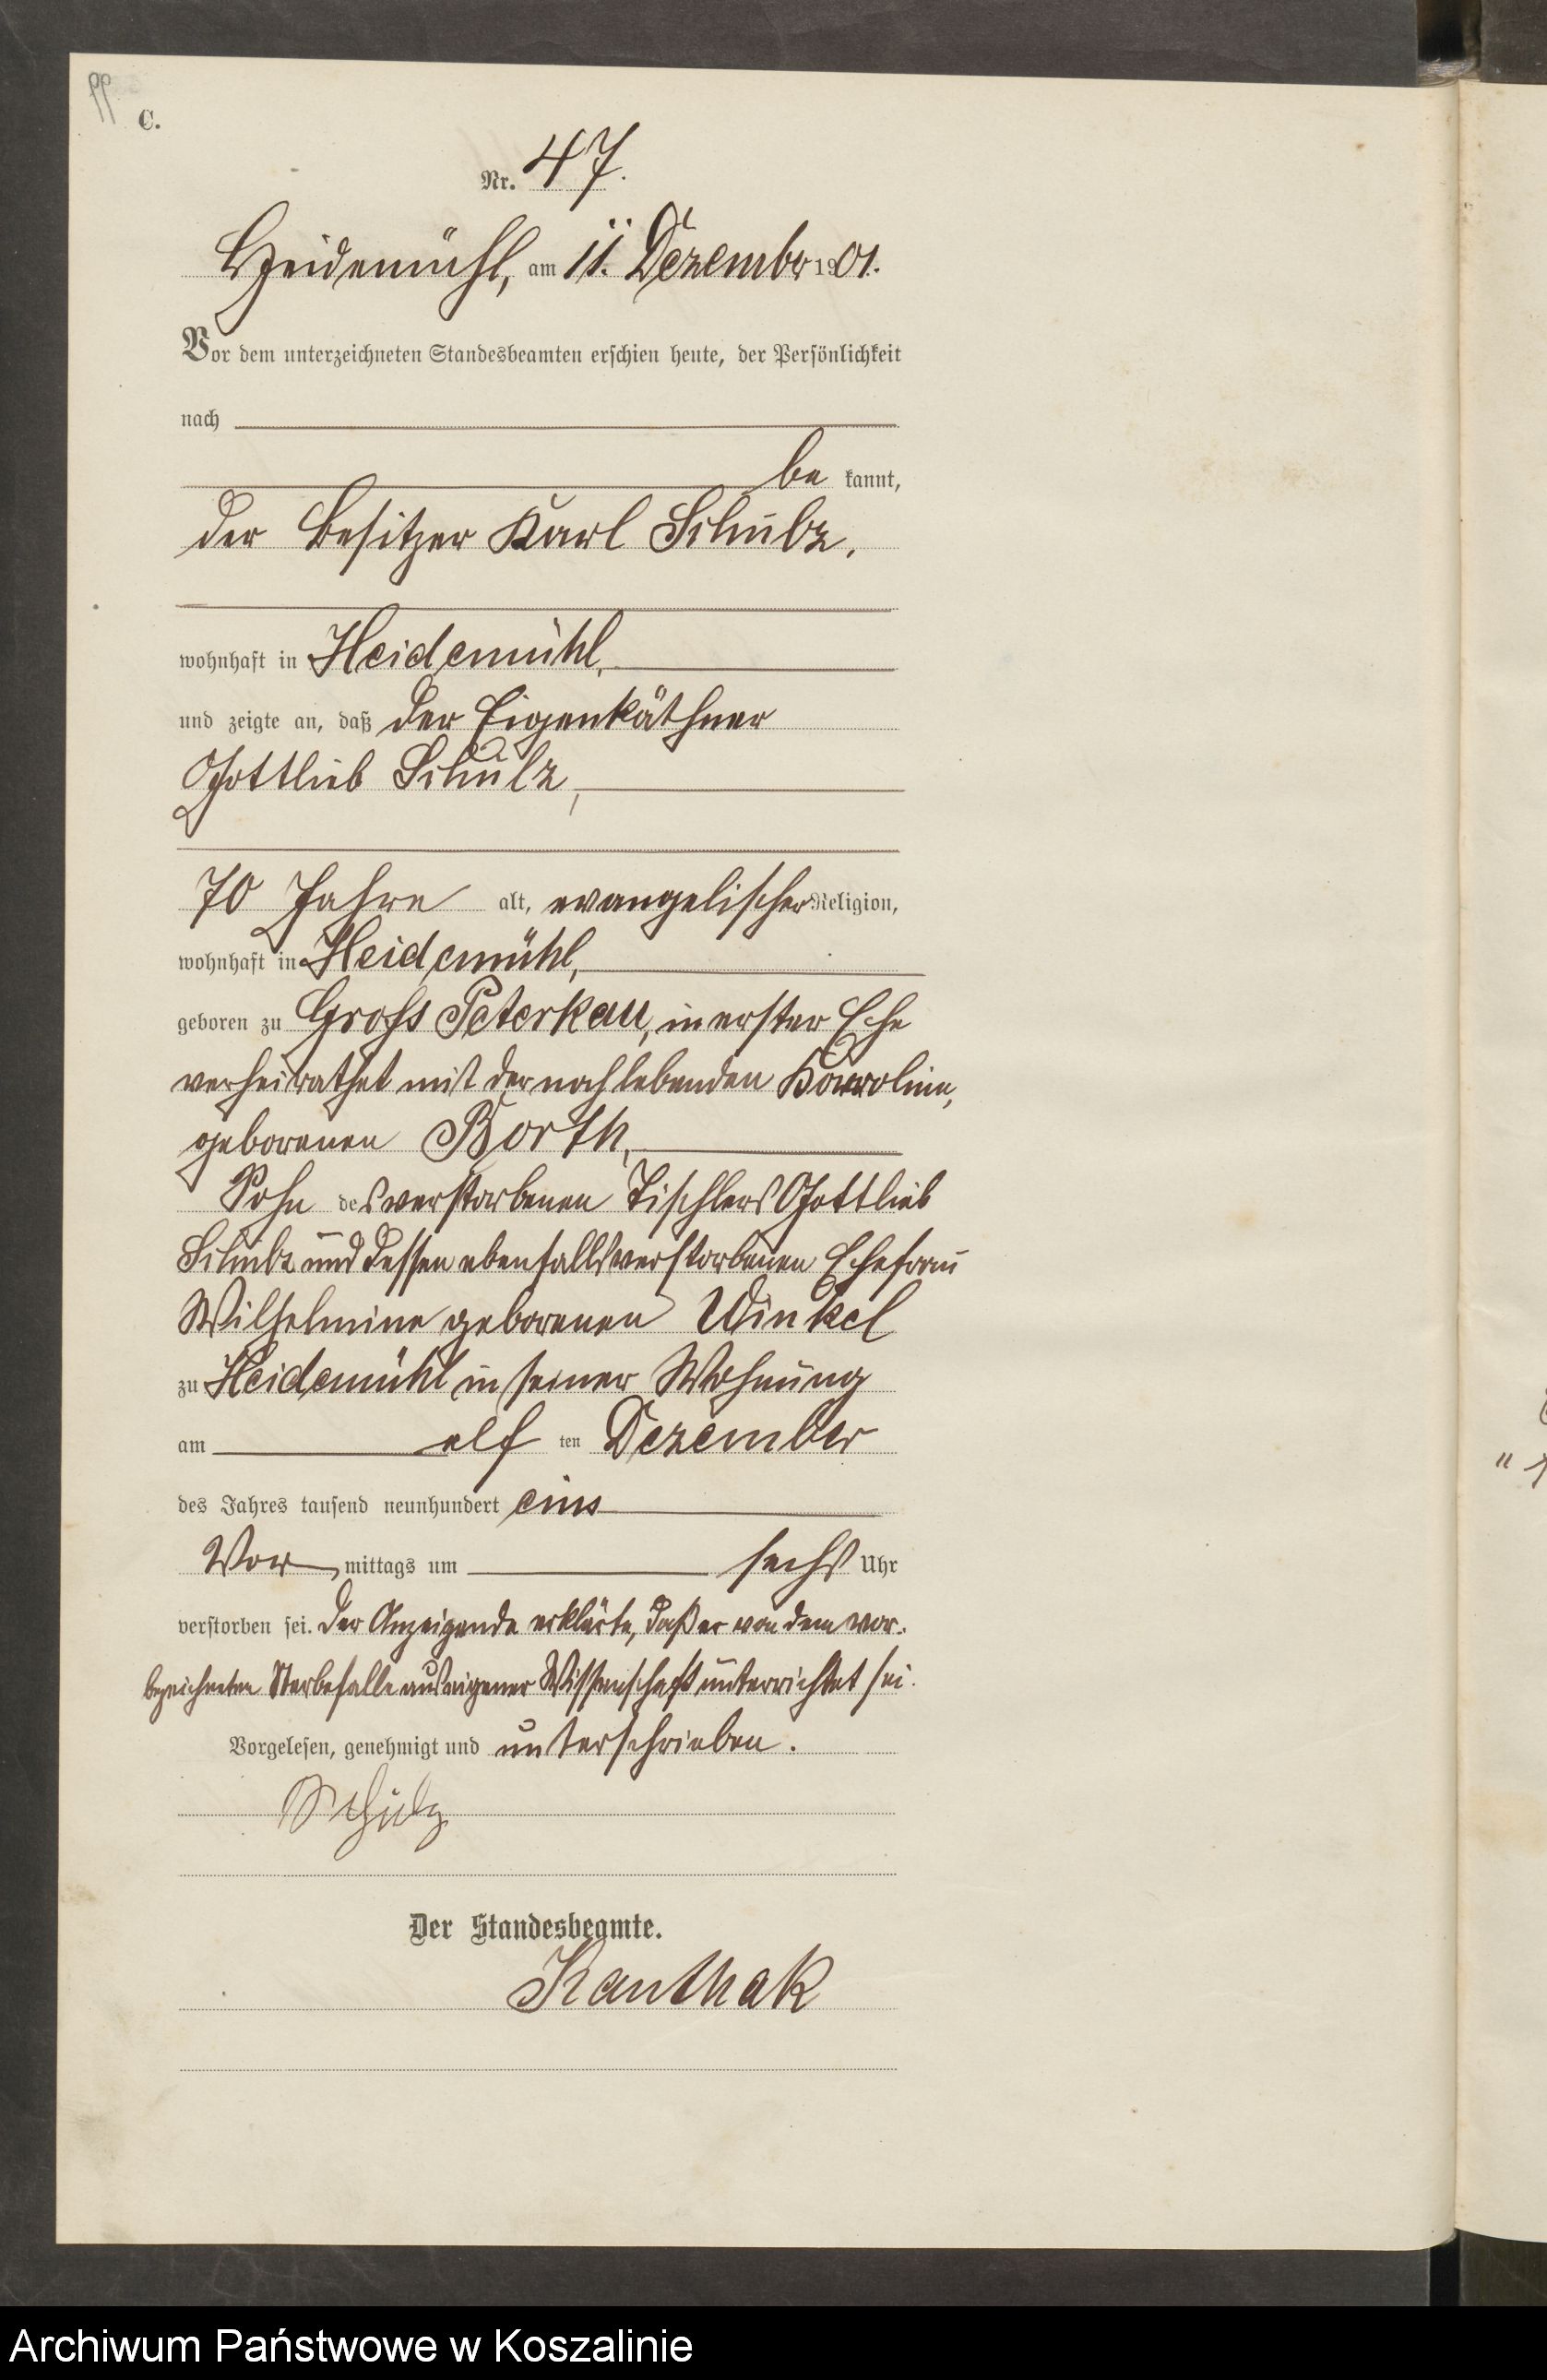 C.
Nr. 47.
Heidemühl, am 11. Dezember 1901.
Vor dem unterzeichneten Standesbeamten erschien heute, der Persönlichkeit
nach
be kannt,
der Besitzer Karl Schulz,
wohnhaft in Heidemühl,
und zeigte an, daß der Eigenkäthner
Gottlieb Schulz,
70 Jahre alt, evangelischer Religion,
wohnhaft in Heidemühl,
geboren zu Gross Peterkau, in erster Ehe
verheirathet mit der noch lebenden Karoline,
geborenen Borth,
Sohn des verstorbenen Tischlers Gottlieb
Schulz und dessen ebenfalls verstorbenen Ehefrau
Wilhelmine geborenen Winkel
zu Heidemühl in seiner Wohnung
am elf ten Dezember
des Jahres tausend neunhundert eins
Vor mittags um sechs Uhr
verstorben sei. Der Anzeigende erklärte, daß er von dem vor-
bezeichneten Sterbefalle aus eigener Wissenschaft unterrichtet sei.
Vorgelesen, genehmigt und unterschrieben.
Schulz
Der Standesbeamte.
Kanthak
Archiwum Państwowe w Koszalinie